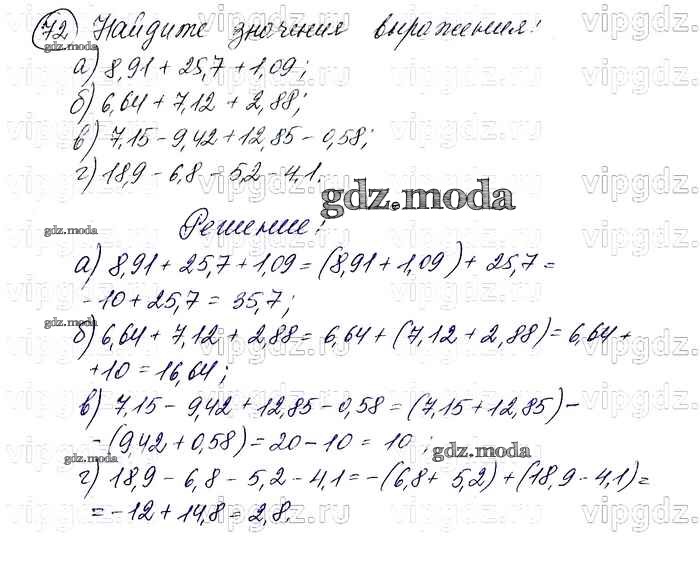 72 Найдите значения выражения:
а) 8,91 + 25,7 + 1,09;
б) 6,64 + 7,12 + 2,88;
в) 7,15 - 9,42 + 12,85 - 0,58;
г) 18,9 - 6,8 - 5,2 - 4,1.
gdz.moda
Решение:
а) 8,91 + 25,7 + 1,09 = (8,91 + 1,09) + 25,7 =
- 10 + 25,7 = 35,7;
б) 6,64 + 7,12 + 2,88 = 6,64 + (7,12 + 2,88) = 6,64 +
+ 10 = 16,64;
в) 7,15 - 9,42 + 12,85 - 0,58 = (7,15 + 12,85) -
- (9,42 + 0,58) = 20 - 10 = 10;
г) 18,9 - 6,8 - 5,2 - 4,1 = -(6,8 + 5,2) + (18,9 - 4,1) =
= -12 + 14,8 = 2,8.